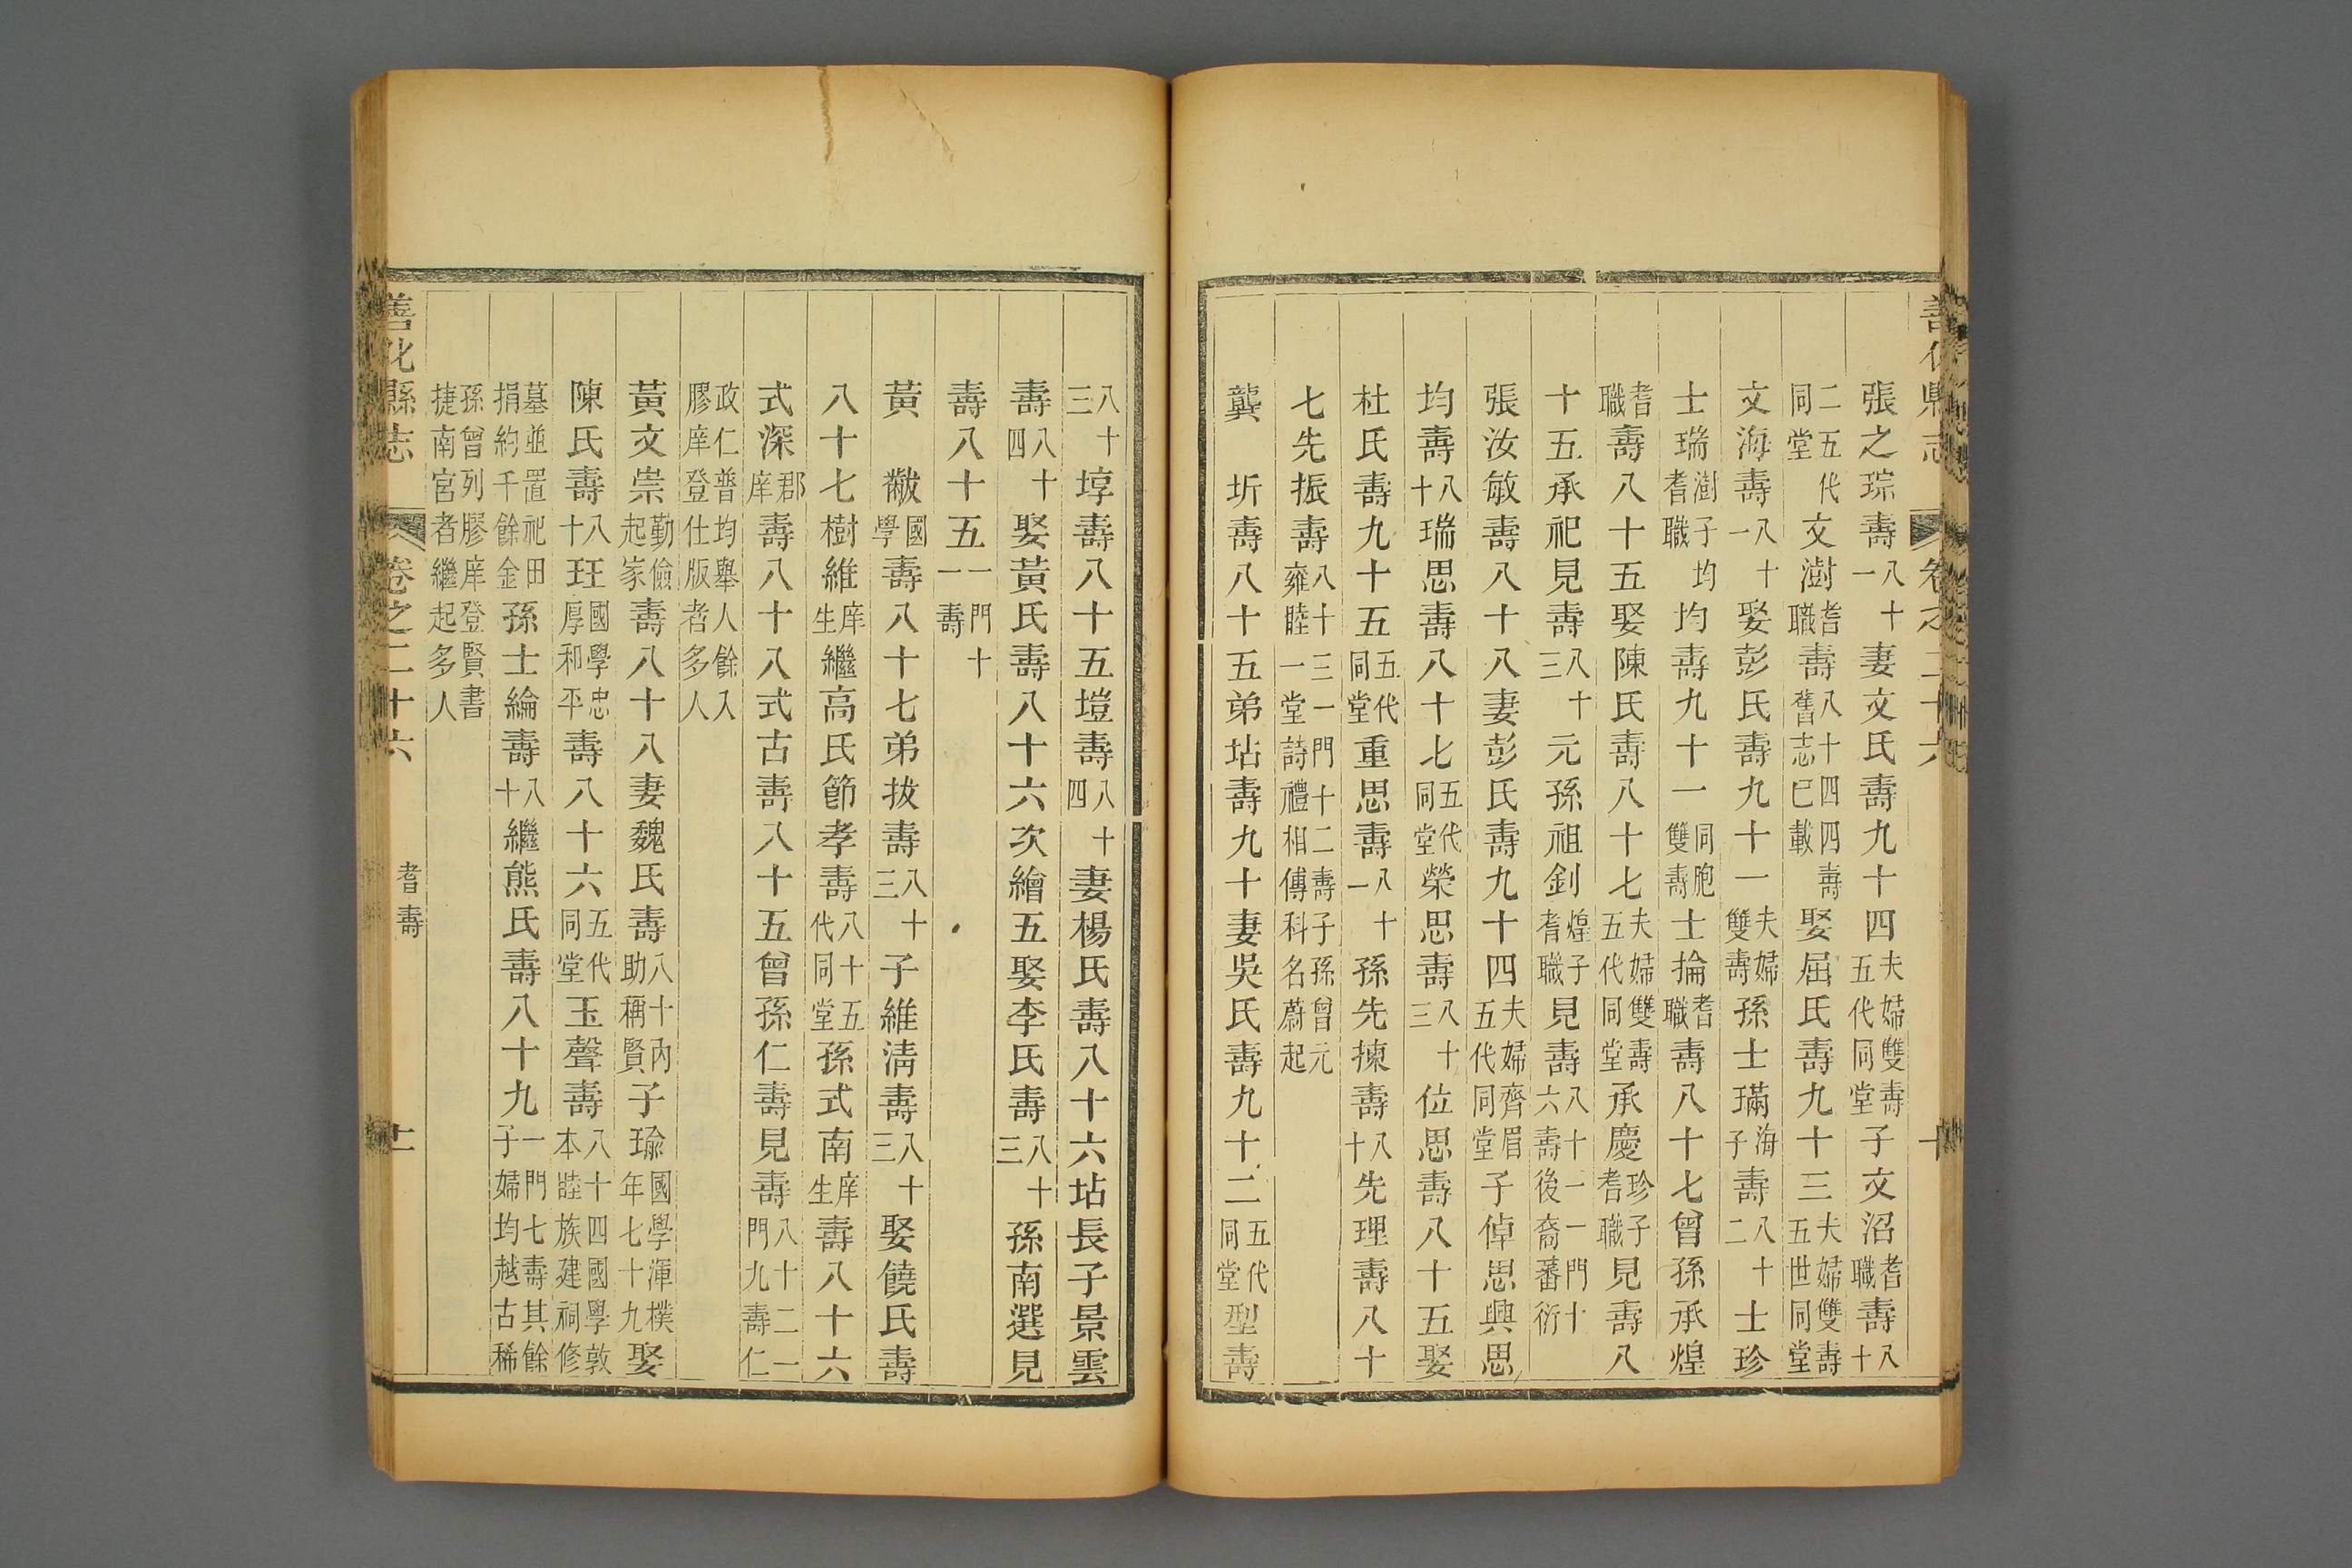 善化縣志 卷之二十六 十
張之琮壽八十一妻文氏壽九十四夫婦雙壽五代同堂子文沼耆職壽八十
二五代同堂文澍耆職壽八十四四壽舊志已載娶屈氏壽九十三夫婦雙壽五世同堂
文海壽八十一娶彭氏壽九十一夫婦雙壽孫士璊海子壽八十二士珍
士瑞澍子均耆職均壽九十一同胞雙壽士掄耆職壽八十七曾孫承煌
耆職壽八十五娶陳氏壽八十七夫婦雙壽五代同堂承慶珍子耆職見壽八
十五承祀見壽八十三元孫祖釗煌子耆職見壽八十一一門十六壽後裔蕃衍
張汝敏壽八十八妻彭氏壽九十四夫婦齊眉五代同堂子倬思興思
均壽八十瑞思壽八十七五代同堂榮思壽八十三位思壽八十五娶
杜氏壽九十五五代同堂重思壽八十一孫先揀壽八十先理壽八十
七先振壽八十三一門十二壽子孫曾元雍睦一堂詩禮相傳科名蔚起
龔圻壽八十五弟坫壽九十妻吳氏壽九十二五代同堂型壽
八十三埻壽八十五塏壽八十四妻楊氏壽八十六坫長子景雲
壽八十四娶黃氏壽八十六次繪五娶李氏壽八十三孫南選見
壽八十五一門十一壽
黃黻國學壽八十七弟拔壽八十三子維清壽八十三娶饒氏壽
八十七樹維庠生繼高氏節孝壽八十五代同堂孫式南庠生壽八十六
式深郡庠壽八十八式古壽八十五曾孫仁壽見壽八十二一門九壽仁
政仁普均舉人餘入膠庠登仕版者多人
黃文崇勤儉起家壽八十八妻魏氏壽八十內助稱賢子瑜國學渾樸年七十九娶
陳氏壽八十玨國學忠厚和平壽八十六五代同堂玉聲壽八十四國學敦本睦族建祠修
墓並置祀田捐約千餘金孫士綸壽八十繼熊氏壽八十九一門七壽其餘子婦均越古稀
孫曾列膠庠登賢書捷南宮者繼起多人
善化縣志 卷之二十六 耆壽 十一